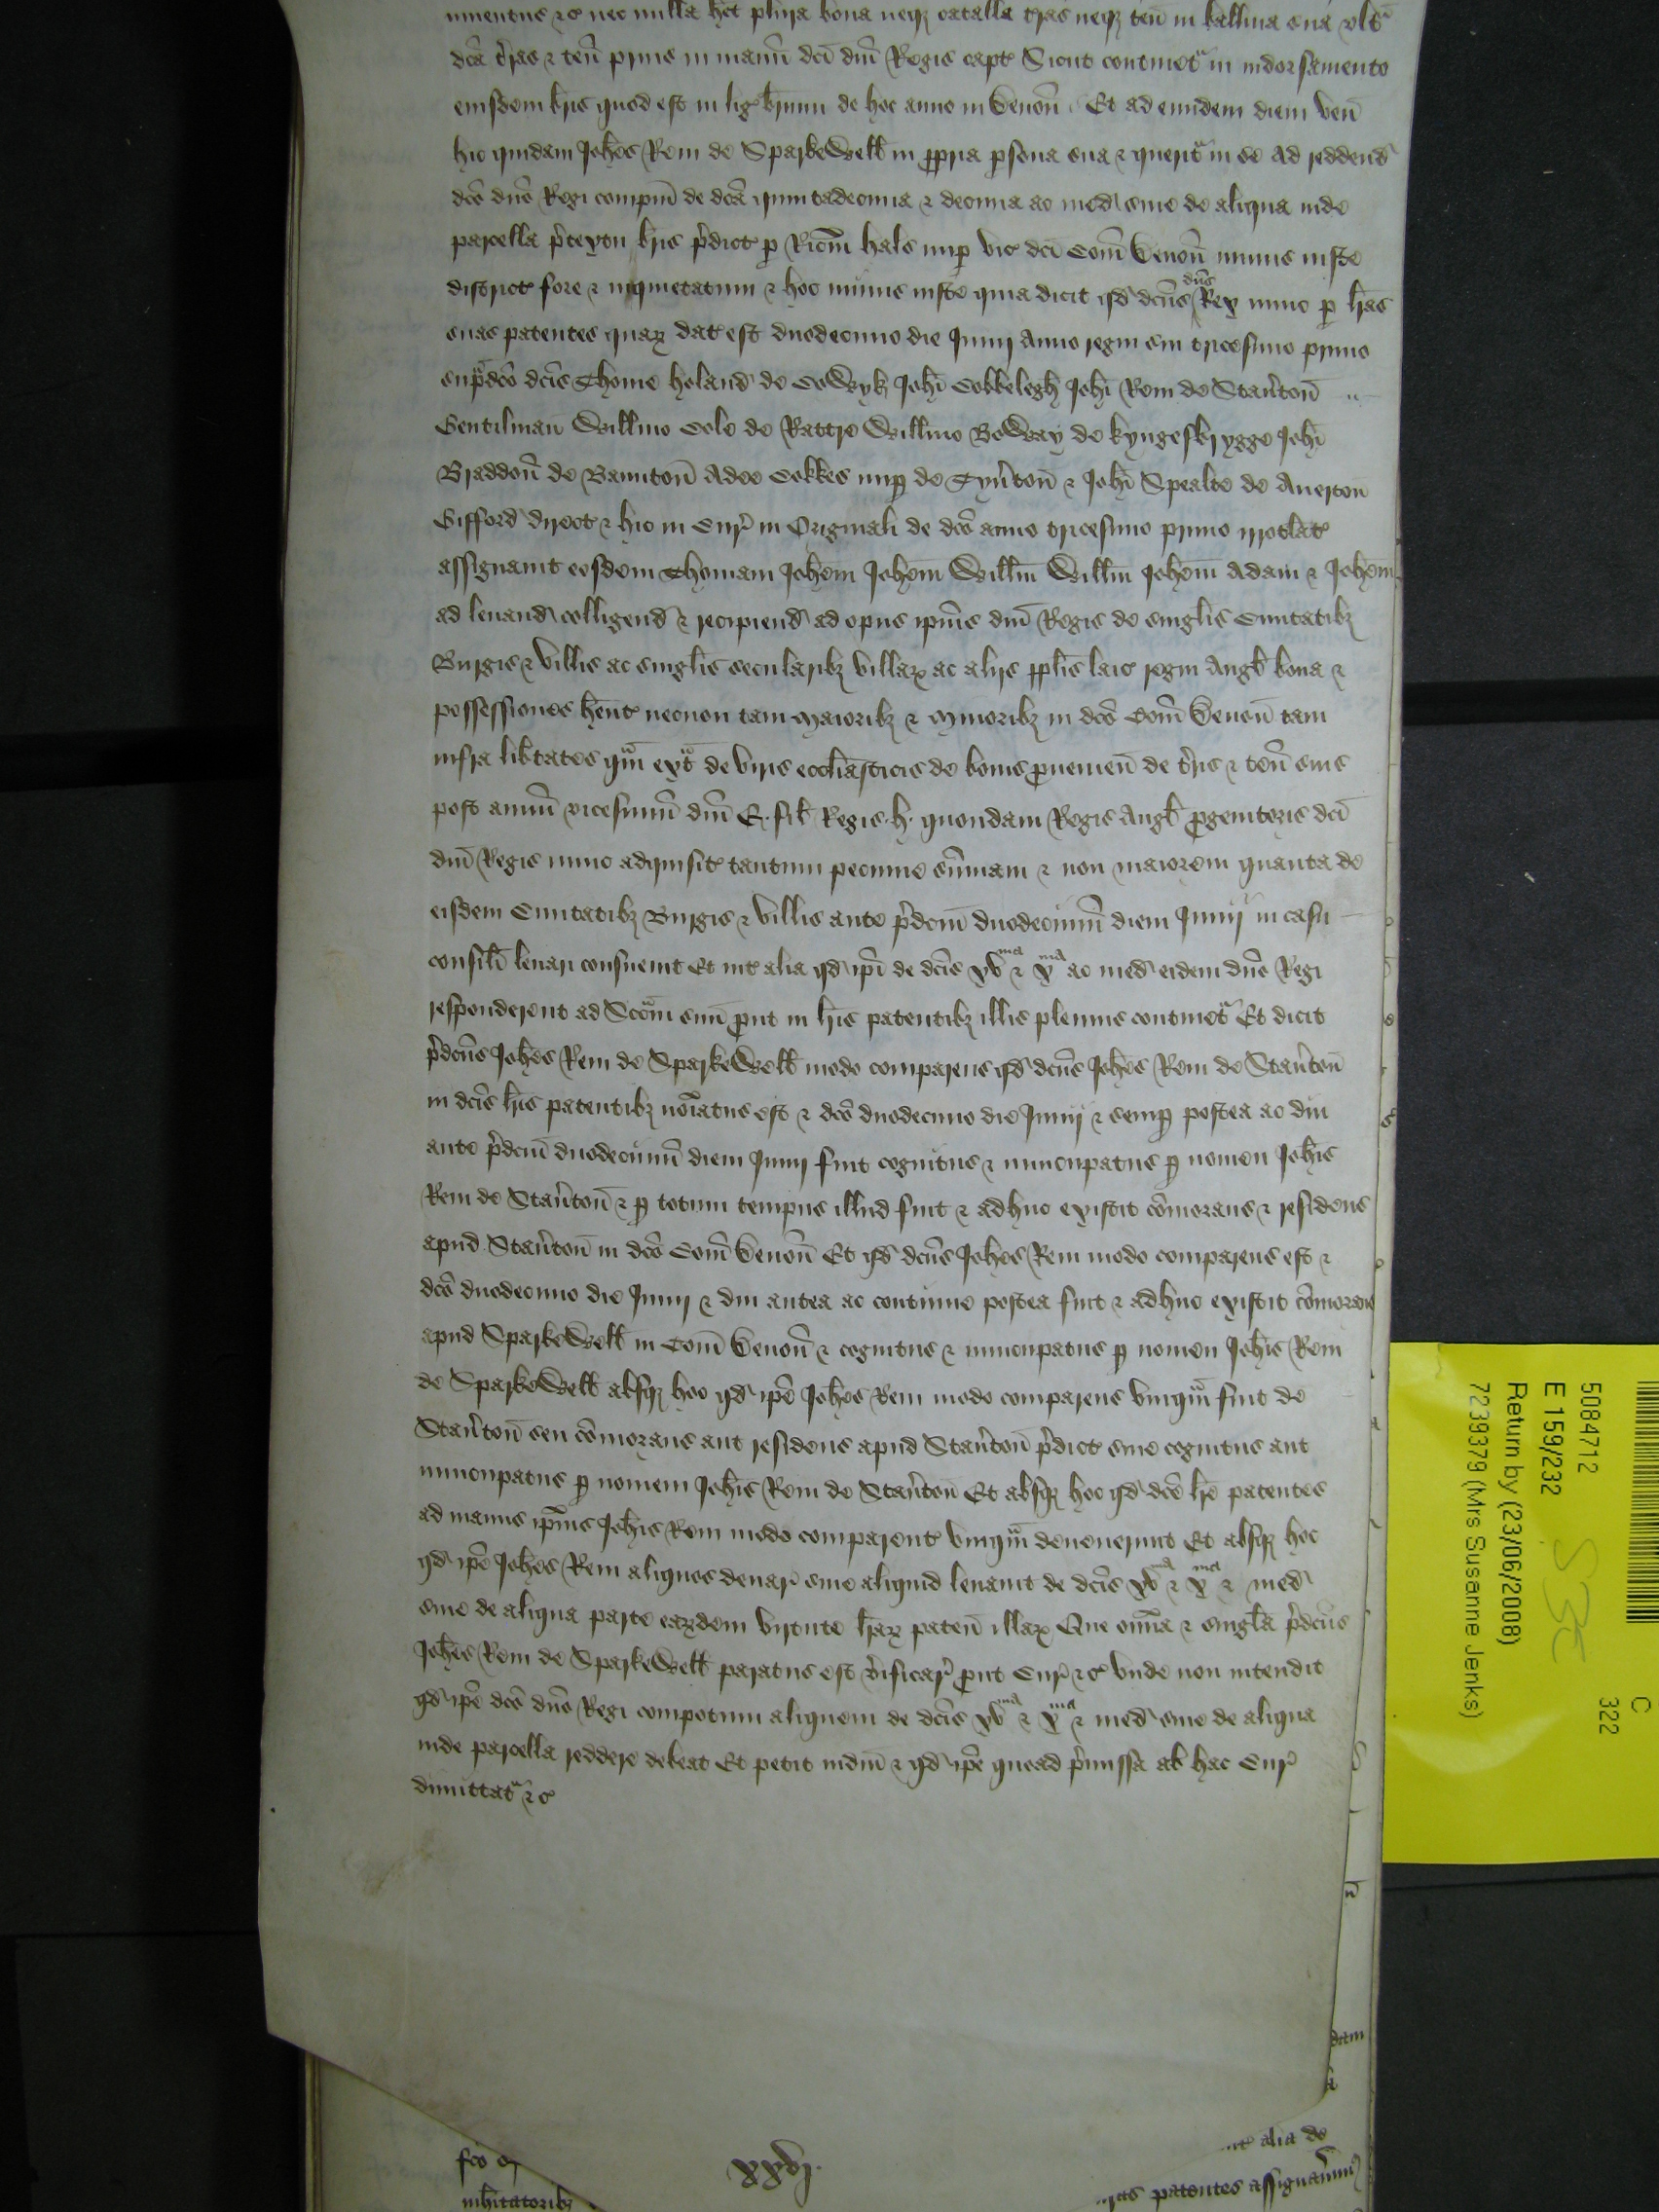 inuentus &c nec nulla het plura bona neqz catalla tras neqz ten in balliua sua vlt
dca tras & ten prius in manu dci dni Regis capt Sicut continet in indorsamento
eiusdem bris quod est in lig breuiu de hoc anno in Deuon Et ad eundem diem ven
hic quidam Johes Rem de Sparkewell in ppria psona sua & querit in se ad reddend
dco dno Regi compm de dca quintadecima & decima ac med siue de aliqua inde
parcella ptextu bris pdict p Ricm hals nup vic dci Com Deuon minus iuste
district fore & inquietatum & hoc minus iuste quia dicit qd dcus dns Rex nunc p lras
suas patentes quarz dat est duodecimo die Junij Anno regni sui tricesimo primo
supdco dcis Thome holand de Cowyk Johi Cobbelegh Johi Rem de Stauton
Gentilman Willmo Cole de Rattre Willmo Boway de kyngesbrygge Johi
Braddon de Bamton Ade Cokkes nup de Tynton & Johi Spealte de Auerton
Gifford direct & hic in Cur in Originali de dco anno tricesimo primo irrotlat
assignauit eosdem Thomam Johem Johem Willm Willm Johem Adam & Johem
ad leuand colligend & recipiend ad opus ipius dni Regis de singlis Ciuitatibz
Burgis & villis ac singlis secularibz villarz ac alijs pplis laic regni Angl bona &
possessiones hent necnon tam maioribz & minoribz in dco Com Deuon tam
infra libtates qm ext de viris ecclias ticis de bonis puenien de tris & ten suis
post annu vicesimu dni E. fil Regis h. quondam Regis Angl pgenitoris dci
dni Regis nunc adquisit tantum pecunie summam & non maiorem quanta de
eisdem Ciuitatibz Burgis & villis ante pdcm duodecimu diem Junij in casu
consili leuari consueuit Et int alia qd ipi de dcis xv ma & x ma ac med eidem dno Regi
responderent ad Sccm suu put in lris patentibz illis plenius continet Et dicit
pdcus Johes Rem de Sparkewell modo comparens qd dcus Johes Rem de Stauton
in dcis lris patentibz noiatus est & dco duodecimo die Junij & semp postea ac diu
ante pdcm duodecimu diem Junij fuit cognitus & nuncupatus p nomen Johis
Rem de Stauton & p totum tempus illud fuit & adhuc existit comorans & residens
apud Stauton in dco Com Deuon Et qd dcus Johes Rem modo comparens est &
dco duodecimo die Junij & diu antea ac continue postea fuit & adhuc existit comorans
apud Sparkewell in Com Deuon & cognitus & nuncupatus p nomen Johis Rem
de Sparkewell absqz hoc qd ipe Johes Rem modo comparens vnqm fuit de
Stauton seu comorans aut residens apud Stauton pdict siue cognitus aut
nuncupatus p nomem Johis Rem de Stauton Et absqz hoc qd dce lre patentes
ad manus ipius Johis Rem modo comparent vnqm deuenerunt Et absqz hoc
qd ipe Johes Rem aliquos denar siue aliquid leuauit de dcis xv ma & x ma & med
siue de aliqua parte earzdem virtute lrarz paten illarz Que omia & singla pdcus
Johes Rem de Sparkewell paratus est vificar put Cur &c vnde non intendit
qd ipe dco dno Regi compotum aliquem de dcis xv ma & x ma & med siue de aliqua
inde parcella reddere debeat Et petit iudm & qd ipe quoad pmissa ab hac Cur
dimittat &c
diem
alia de
xxvj.
patentes assignauim
inhitatoribz
C
322
5084712
E 159/232
Return by (23/06/2008)
7239379 (Mrs Susanne Jenks)